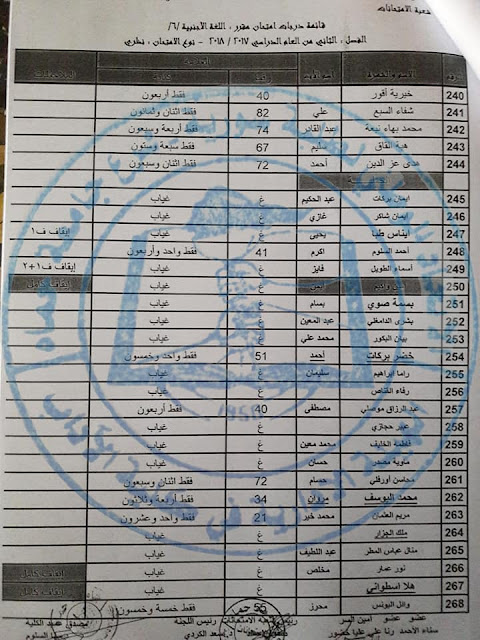 شعبة الامتحانات
قائمة درجات امتحان مقرر : اللغة الاجنبية /٦/
الفصل : الثاني من العام الدراسي ٢٠١٧ / ٢٠١٨ - نوع الامتحان : نظري
الرقم الاسم والشهرة اسم الأب رقما كتابة الملاحظات
240 خيرية أفور 40 فقط أربعون
241 شفاء السبع علي 82 فقط اثنان وثمانون
242 محمد بهاء نبعة عبد القادر 74 فقط أربعة وسبعون
243 هبة القاق سليم 67 فقط سبعة وستون
244 هدى عز الدين أحمد 72 فقط اثنان وسبعون
245 ايمان بركات عبد الحكيم غ غياب
246 ايمان شاكر غازي غ غياب
247 ايناس طبا يحيى غ غياب إيقاف ف١
248 أحمد السلوم اكرم 41 فقط واحد وأربعون
249 أسماء الطويل فايز غ غياب إيقاف ف١+٢
250 غ غياب إيقاف كامل
251 بسمة صوي بسام غ غياب
252 بشرى الدامغلي عبد المعين غ غياب
253 بيان البكور محمد علي غ غياب
254 خضر بركات أحمد 51 فقط واحد وخمسون
255 راما ابراهيم سليمان غ غياب
256 رفاء القناص غ غياب
257 عبد الرزاق موصلي مصطفى 40 فقط أربعون
258 عبير حجازي غ غياب
259 فاطمة الخليف محمد معين غ غياب
260 ماوية مصدر حسان غ غياب
261 محاسن اورفلي حسام 72 فقط اثنان وسبعون
262 محمد اليوسف مروان 34 فقط أربعة وثلاثون
263 مريم العثمان محمد خير 21 فقط واحد وعشرون
264 ملك الجزار غ غياب
265 منال عباس المطر عبد اللطيف غ غياب
266 نور عمار مخلص غ غياب إيقاف كامل
267 هلا اسطواني غ غياب إيقاف كامل
268 وائل اليونس محرز 55 فقط خمسة وخمسون
عضو عضو امين السر رئيس اللجنة عميد الكلية
سناء الاحمد رنا علي عليا خضور د.سعد الكردي